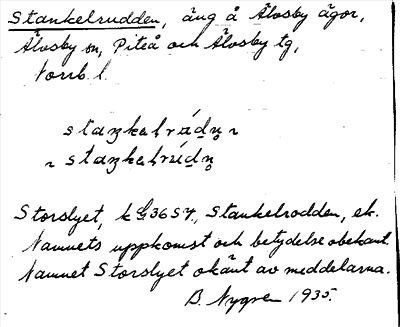 Stankelrudden, äng å Älvsby ägor,
Älvsby sn, Piteå och Älvsby tg,
Norrb. l.
staŋkəlrúdn̥
staŋkəlrúdn̥
Storslyet, k 36 S 7, Stankelrodden, ek.
Namnets uppkomst och betydelse obekant.
Namnet Storslyet okänt av meddelarna.
B. Nygren 1935.